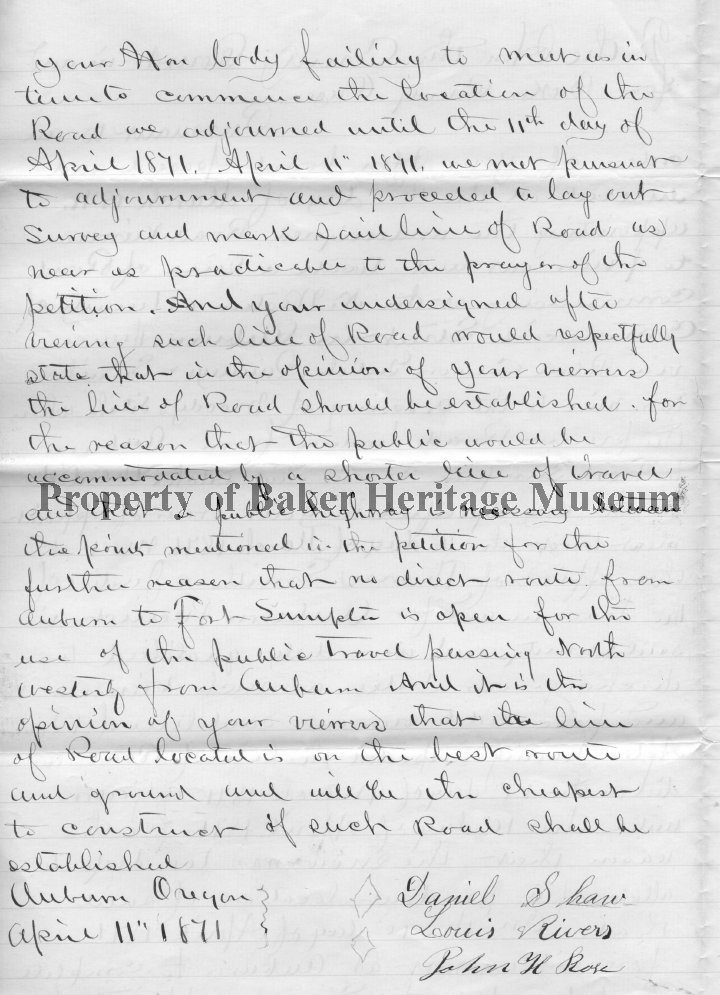 your Hon body failing to meet us in
time to commence the location of the
Road we adjourned until the 11th day of
April 1871. April 11" 1871. we met pursuat
to adjournment and proceded to lay out
Survey and mark said line of Road as
near as practicable to the prayer of the
petition. And your undersigned after
viewing such line of Road would respectfully
state that in the opinion of your viewers
the line of Road should be established. for
the reason that the public would be
accommodated by a shorter line of travel
Property of Baker Heritage Museum
and that a public highway is necessary between
the points mentioned in the petition for the
further reason that no direct route from
Auburn to Fort Sumpter is open for the
use of the public Travel passing North
westerly from Auburn And it is the
opinion of your viewers that the line
of Road located is on the best route
and ground and will be the cheapest
to construct if such Road shall be
established
Auburn Oregon
April 11" 1871
Daniel Shaw
Louis Rivers
John H Rose